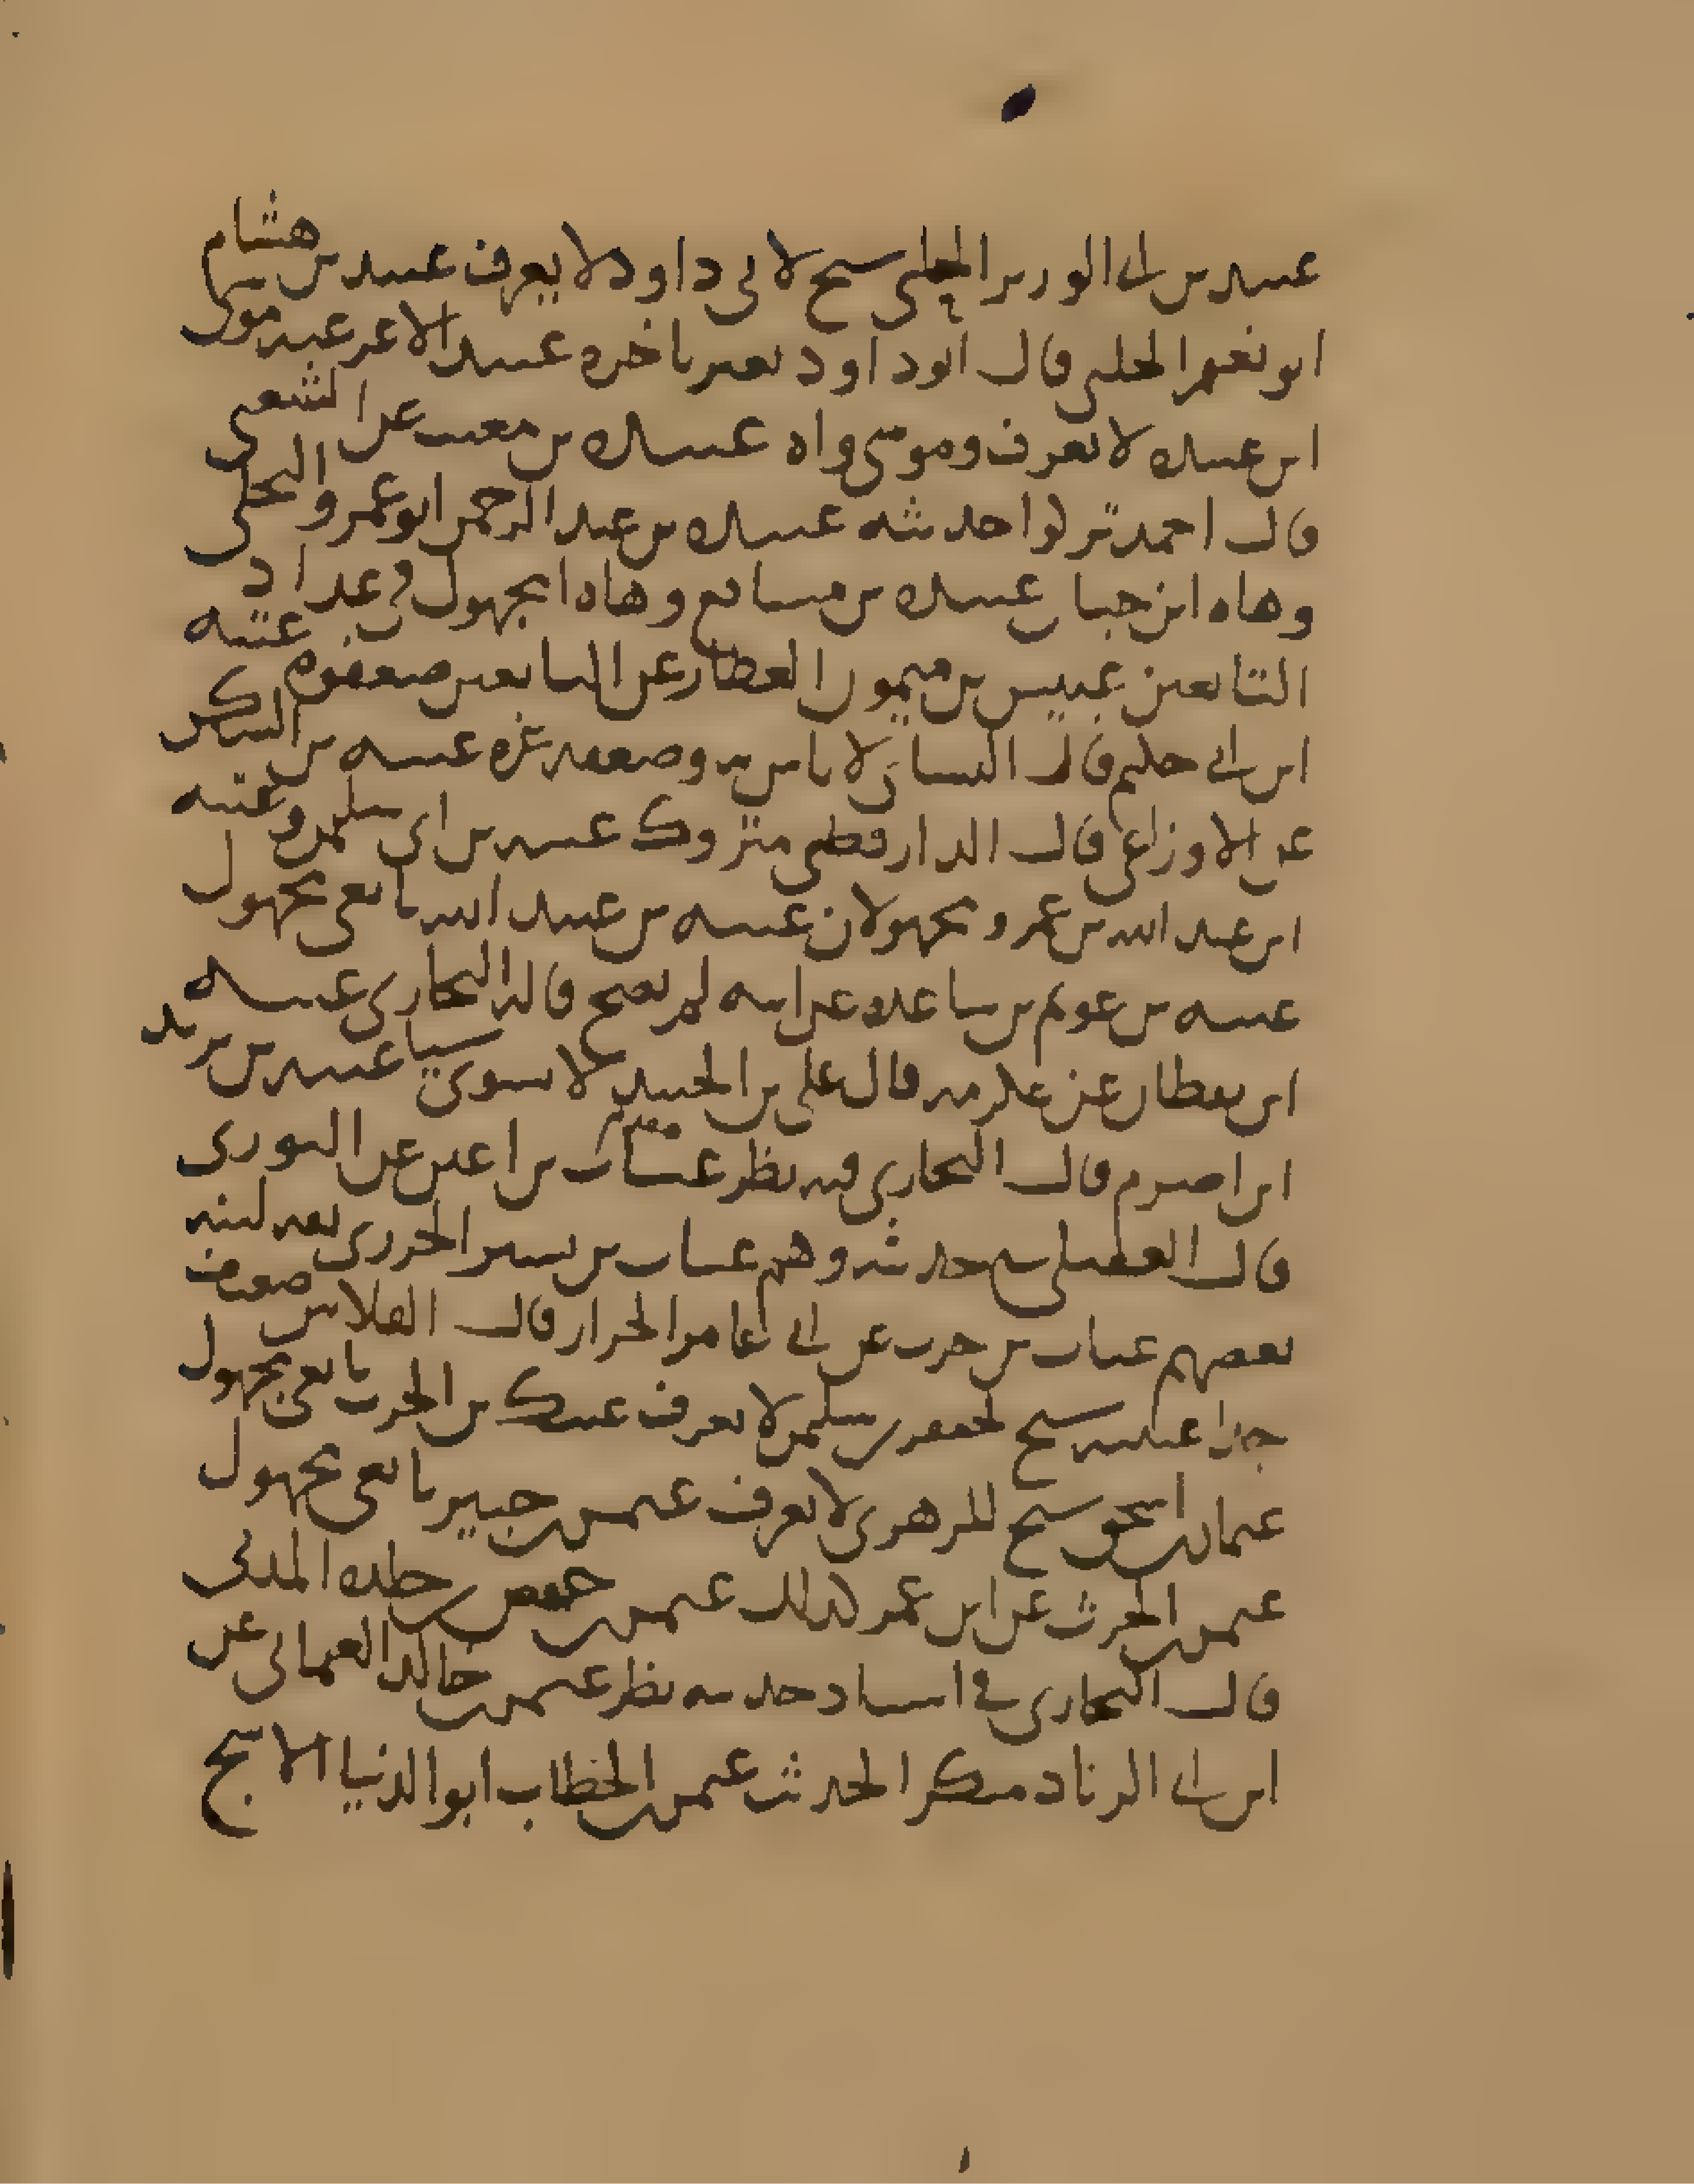 عبيد بن ابي الوزير الحلبي شيخ لابي داود لا يعرف عبيد بن هشام
ابو نعيم الحلبي قال ابو داود تغير باخره عبيد الاغر عبه موسى
ابن عبيده لا يعرف وموسى واه عبيده بن معتب عن الشعبي
قال احمد تركوا حديثه عبيده بن عبد الرحمن ابو عمرو البجلي
وهاه ابن حبان عبيده بن مسافع وهاه المجهول في عداد
التابعين عبيس بن ميمون العطار عن التابعين ضعفوه عتبه
ابن ابي حكيم قال النسائي لا باس به وضعفه غيره عتبه بن السكن
عن الاوزاعي قال الدارقطني متروك عتبه بن ابي سلمه وعتبه
ابن عبد الله بن عمرو مجهولان عتبه بن عبيد الله تابعي مجهول
عتبه بن عويم بن ساعده عن ابيه لم يصح قاله البخاري عتبه
ابن يقظان عن عكرمه قال علي بن الجنيد لا يسوى شيا عتبه بن يزيد
ابن اصرم قال البخاري فيه نظر عتاب بن اعين عن الثوري
قال العقيلي في حديثه وهم عتاب بن بشير الجزري ثقه لينه
بعضهم عتاب بن حرب عن ابي عامر الخزاز قال الفلاس ضعيف
جدا عتيبه شيخ لجعفر بن سليمن لا يعرف عتيك بن الحرث تابعي مجهول
عثمان بن اسحق شيخ للزهري لا يعرف عثمن بن جبير تابعي مجهول
عثمن بن الحرث عن ابن عمر كذلك عثمن بن حفص بن خلده المدني
قال البخاري في اسناد حديثه نظر عثمن بن خالد العثماني عن
ابن ابي الزناد منكر الحديث عثمن بن الخطاب ابو الدنيا الاشج